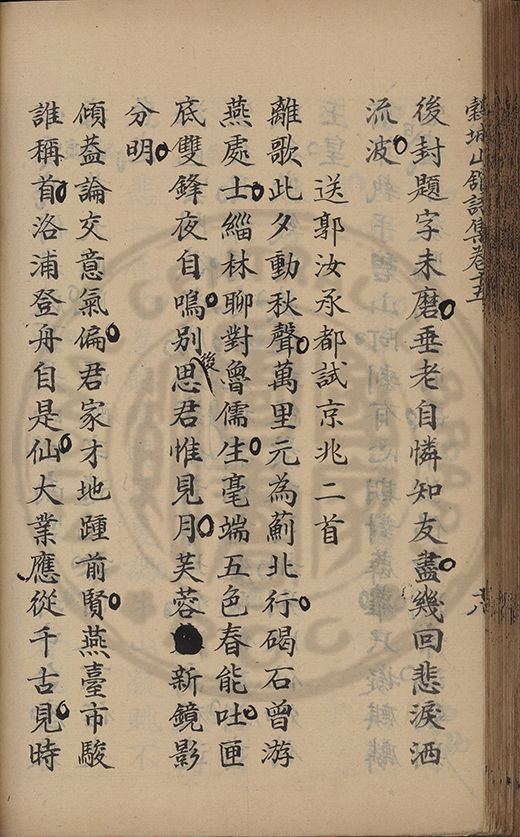 穀城山館詩集卷十五
後封題字未磨垂老自憐知友盡幾回悲淚洒
流波
送郭汝承都試京兆二首
離歌此夕動秋聲萬里元為薊北行碣石曾游
燕處士緇林聊對魯儒生毫端五色春能吐匣
底雙鋒夜自鳴別後思君惟見月芙蓉新鏡影
分明
傾葢論交意氣偏君家才地踵前賢燕臺市駿
誰稱首洛浦登舟自是仙大業應從千古見時